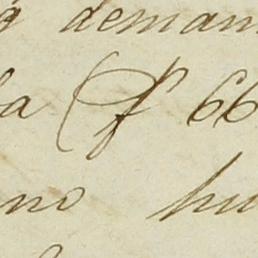 deman
la (f 66
no hu